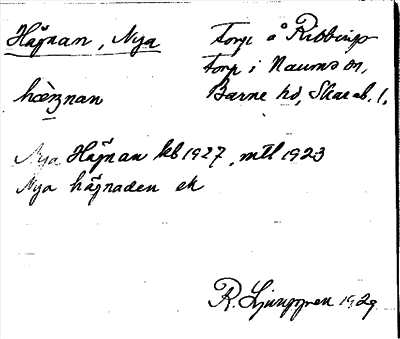 Hägnan, Nya
Torp å Ribbings
torp i Naums sn,
Barne hd, Skarab. l.
hæŋnan
Nya Hägnan kb 1927, mtl 1923
Nya hägnaden ek
R. Ljunggren 1929